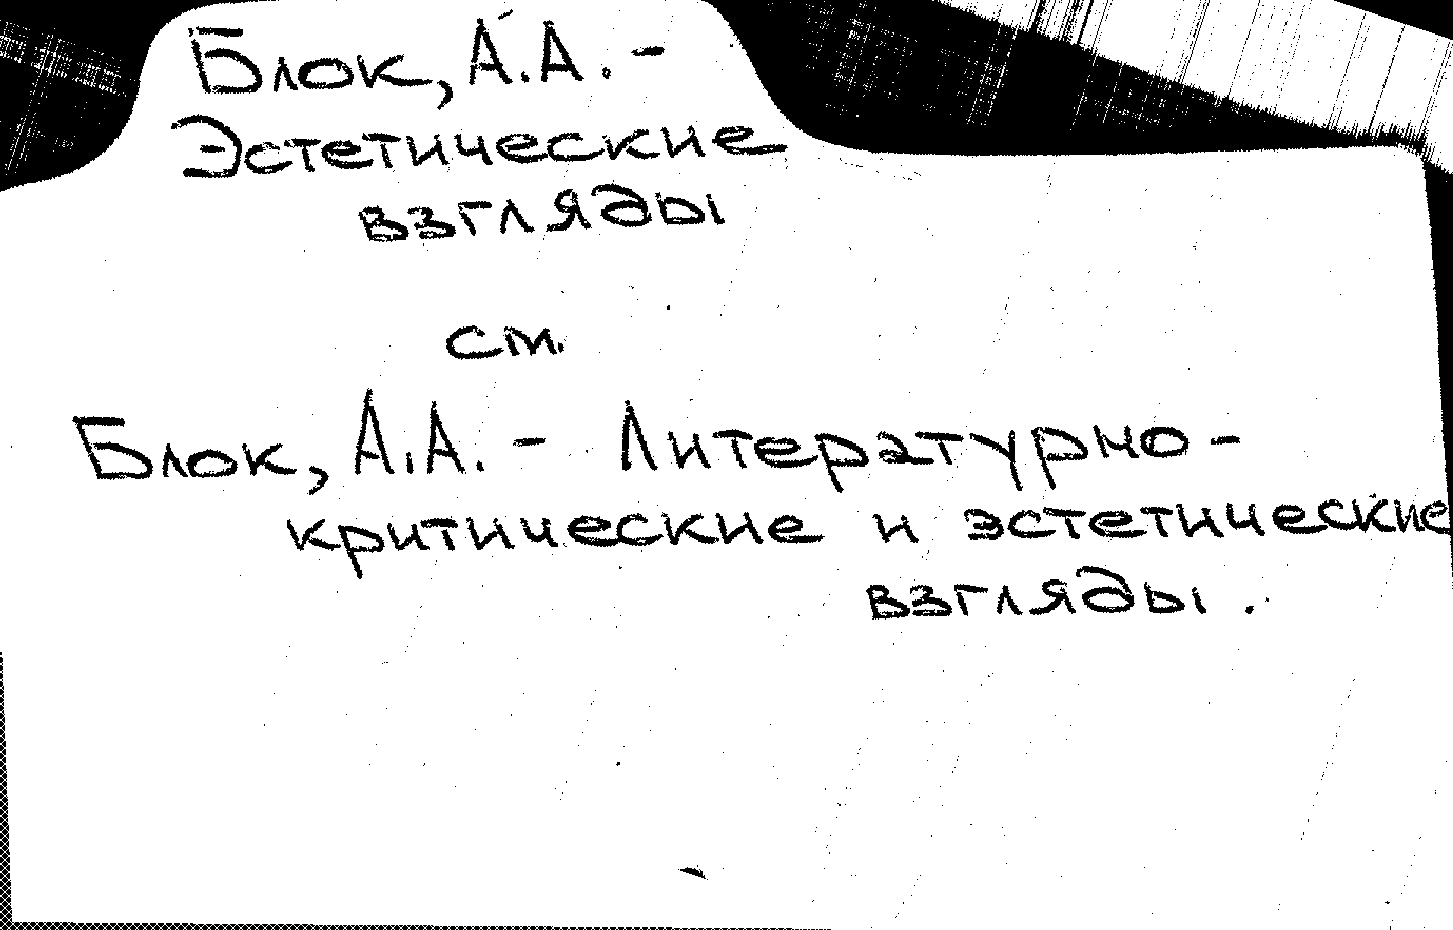 Блок, А.А. -
Эстетические
взгляды
см.
Блок, А.А. - Литературно-
критические и эстетические
взгляды.